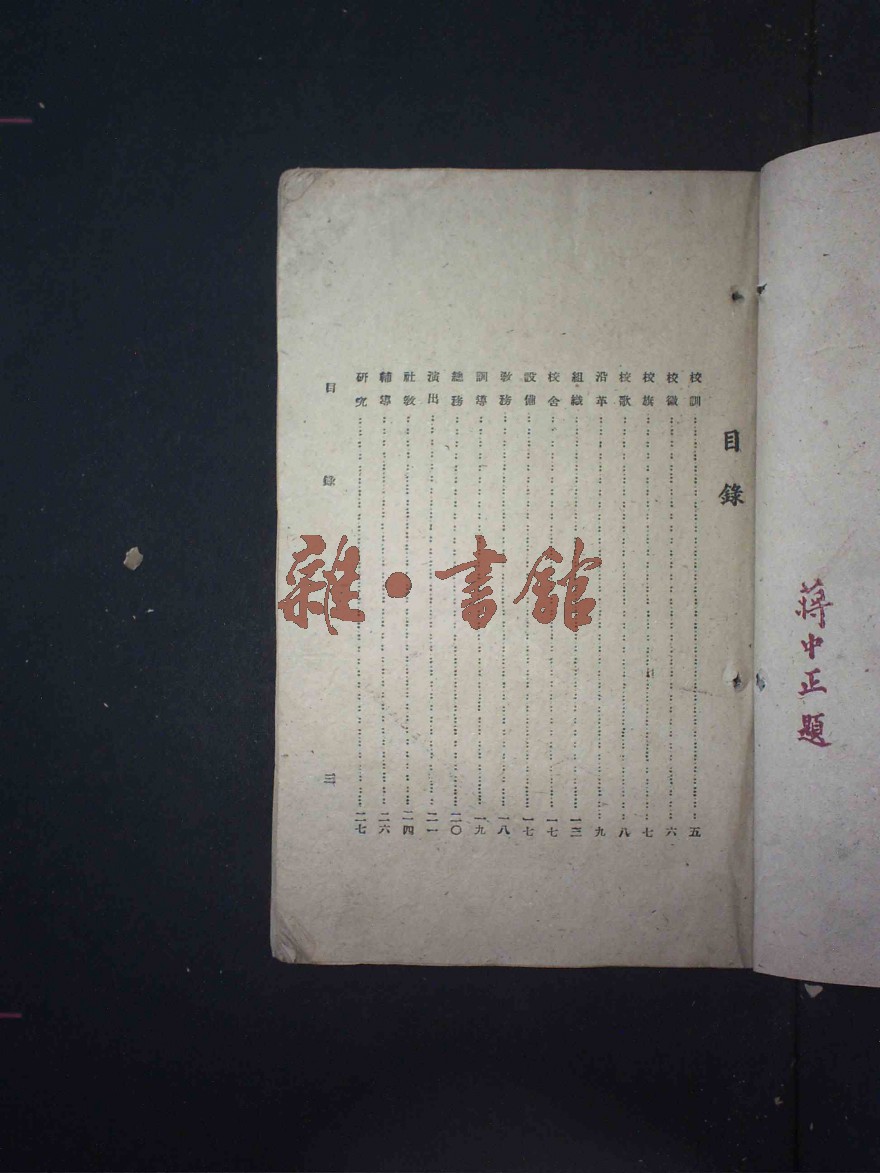 蔣中正題
目錄
校訓⋯⋯五
校徽⋯⋯六
校旗⋯⋯七
校歌⋯⋯八
沿革⋯⋯九
組織⋯⋯一三
校舍⋯⋯一七
設備⋯⋯一七
敎務⋯⋯一八
訓導⋯⋯一九
總務⋯⋯二〇
演出⋯⋯二一
社敎⋯⋯二四
輔導⋯⋯二六
研究⋯⋯二七
目錄
三
雜·書館